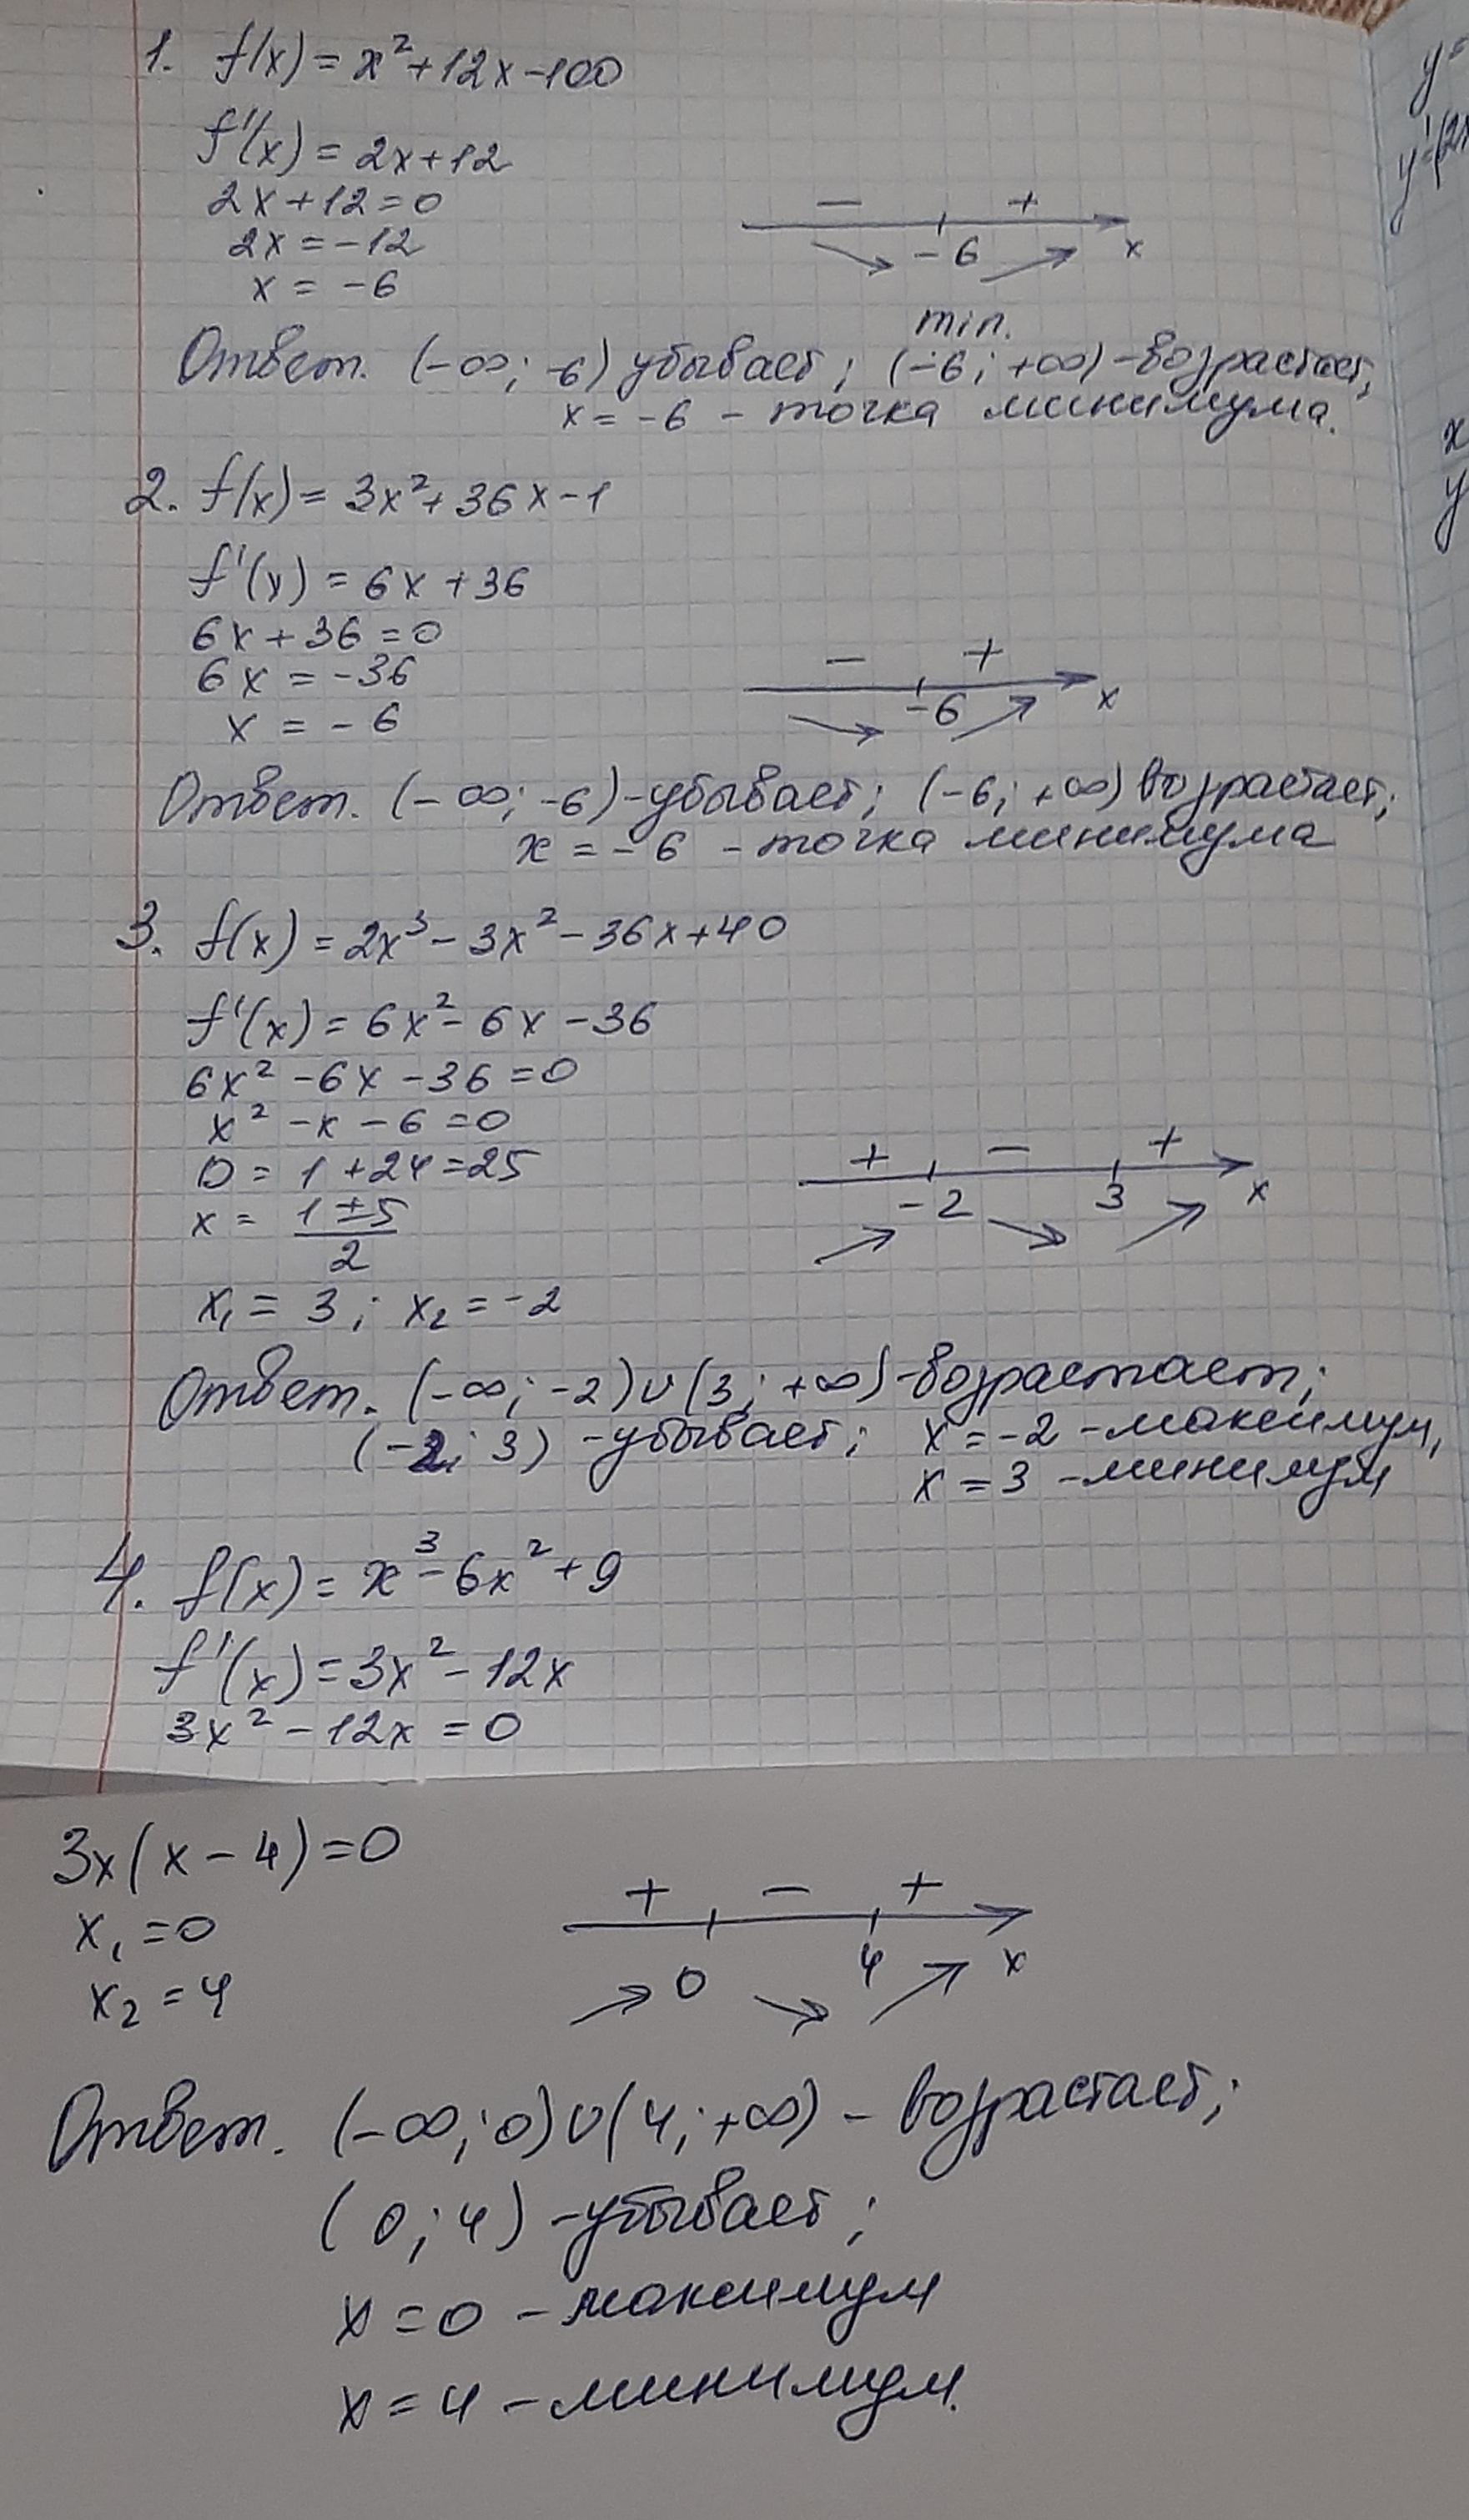 1. f(x) = x²+12x-100
f'(x) = 2x+12
2x+12=0
2x = -12
x = -6
- +
-6 x
min.
Ответ. (-∞; -6) убывает; (-6; +∞) - возрастает;
x = -6 - точка минимума.
2. f(x) = 3x²+36x-1
f'(x) = 6x+36
6x+36=0
6x = -36
x = -6
- +
-6 x
Ответ. (-∞; -6) - убывает; (-6; +∞) возрастает;
x = -6 - точка минимума
3. f(x) = 2x³-3x²-36x+40
f'(x) = 6x²-6x-36
6x²-6x-36=0
x²-x-6=0
D = 1+24=25
x = (1±5)/2
x₁ = 3; x₂ = -2
+ - +
-2 3 x
Ответ. (-∞; -2)∪(3; +∞) - возрастает;
(-2; 3) - убывает; x = -2 - максимум,
x = 3 - минимум
4. f(x) = x³-6x²+9
f'(x) = 3x²-12x
3x²-12x=0
3x(x-4)=0
x₁=0
x₂=4
+ - +
0 4 x
Ответ. (-∞; 0)∪(4; +∞) - возрастает;
(0; 4) - убывает;
x=0 - максимум
x=4 - минимум.
y=
x
y